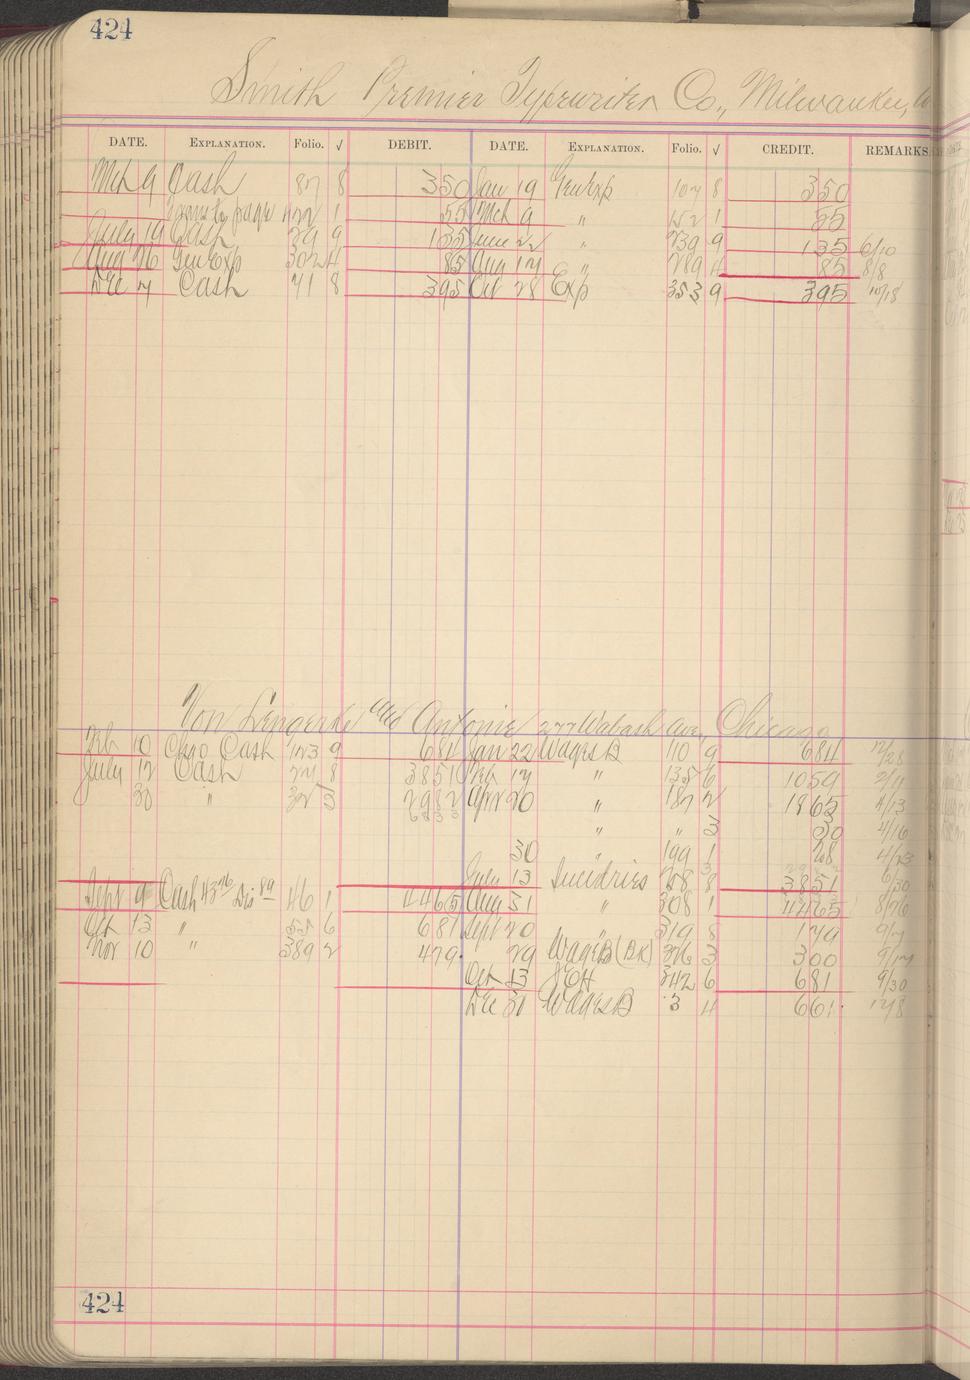 424
Smith Premier Typewriter Co., Milwaukee,
DATE. EXPLANATION. Folio. √ DEBIT. DATE. EXPLANATION. Folio. √ CREDIT. REMARKS.
Mch 9 Cash 87 8 350 Jan 19 GenExp 107 8 350
page 422 1 55 Mch 9 " 152 1 55
July 19 Cash 29 9 135 June 22 " 239 9 135 6/10
Aug 26 GenExp 302 4 85 Aug 17 " 289 4 85 8/8
Dec 7 Cash 71 8 395 Oct 28 Exp 353 9 395 10/18
Von Lengerke and Antonie 277 Wabash Ave, Chicago
Feb 10 Chgo Cash 123 9 684 Jan 22 WagesB 110 9 684 12/28
July 12 Cash 27 8 3851 Feb 17 " 135 6 1059 2/7
30 " 32 5 2982 Apr 20 " 187 2 1865 4/13
6833 " " 3 30 4/16
30 " 199 1 28 4/23
July 13 Sundries 258 8 3851 6/30
Sept 9 Cash 43 76 Dis 89 46 1 4465 Aug 31 " 308 1 4465 8/26
Oct 13 " 55 6 681 Sept 20 " 319 5 179 9/7
Nov 10 " 389 2 479 29 WagesB (BK) 326 3 300 9/17
Oct 13 342 6 681 9/30
Dec 31 WagesB 3 4 661 12/8
424